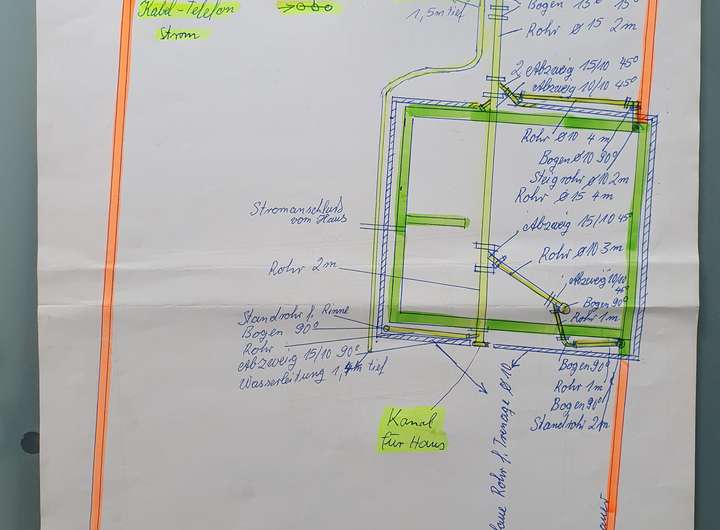 Kabel-Telefon
Strom
1,5m tief
Bogen 15° 15°
Rohr ø 15 2m
2 Abzweig 15/10 45°
Abzweig 10/10 45°
Rohr ø 10 4 m
Bogen ø 10 90°
Steigrohr ø 10 2m
Rohr ø 15 4m
Stromanschluß
vom Haus
Abzweig 15/10 45°
Rohr ø 10 3m
Rohr 2m
Abzweig 10/10
45°
Bogen 90°
Rohr 1m
Standrohr f. Rinne
Bogen 90°
Rohr
Abzweig 15/10 90°
Wasserleitung tief
Bogen 90°
Rohr 1m
Bogen 90°
Standrohr 2m
Kanal
für Haus
Rohr f. Trenage ø 10